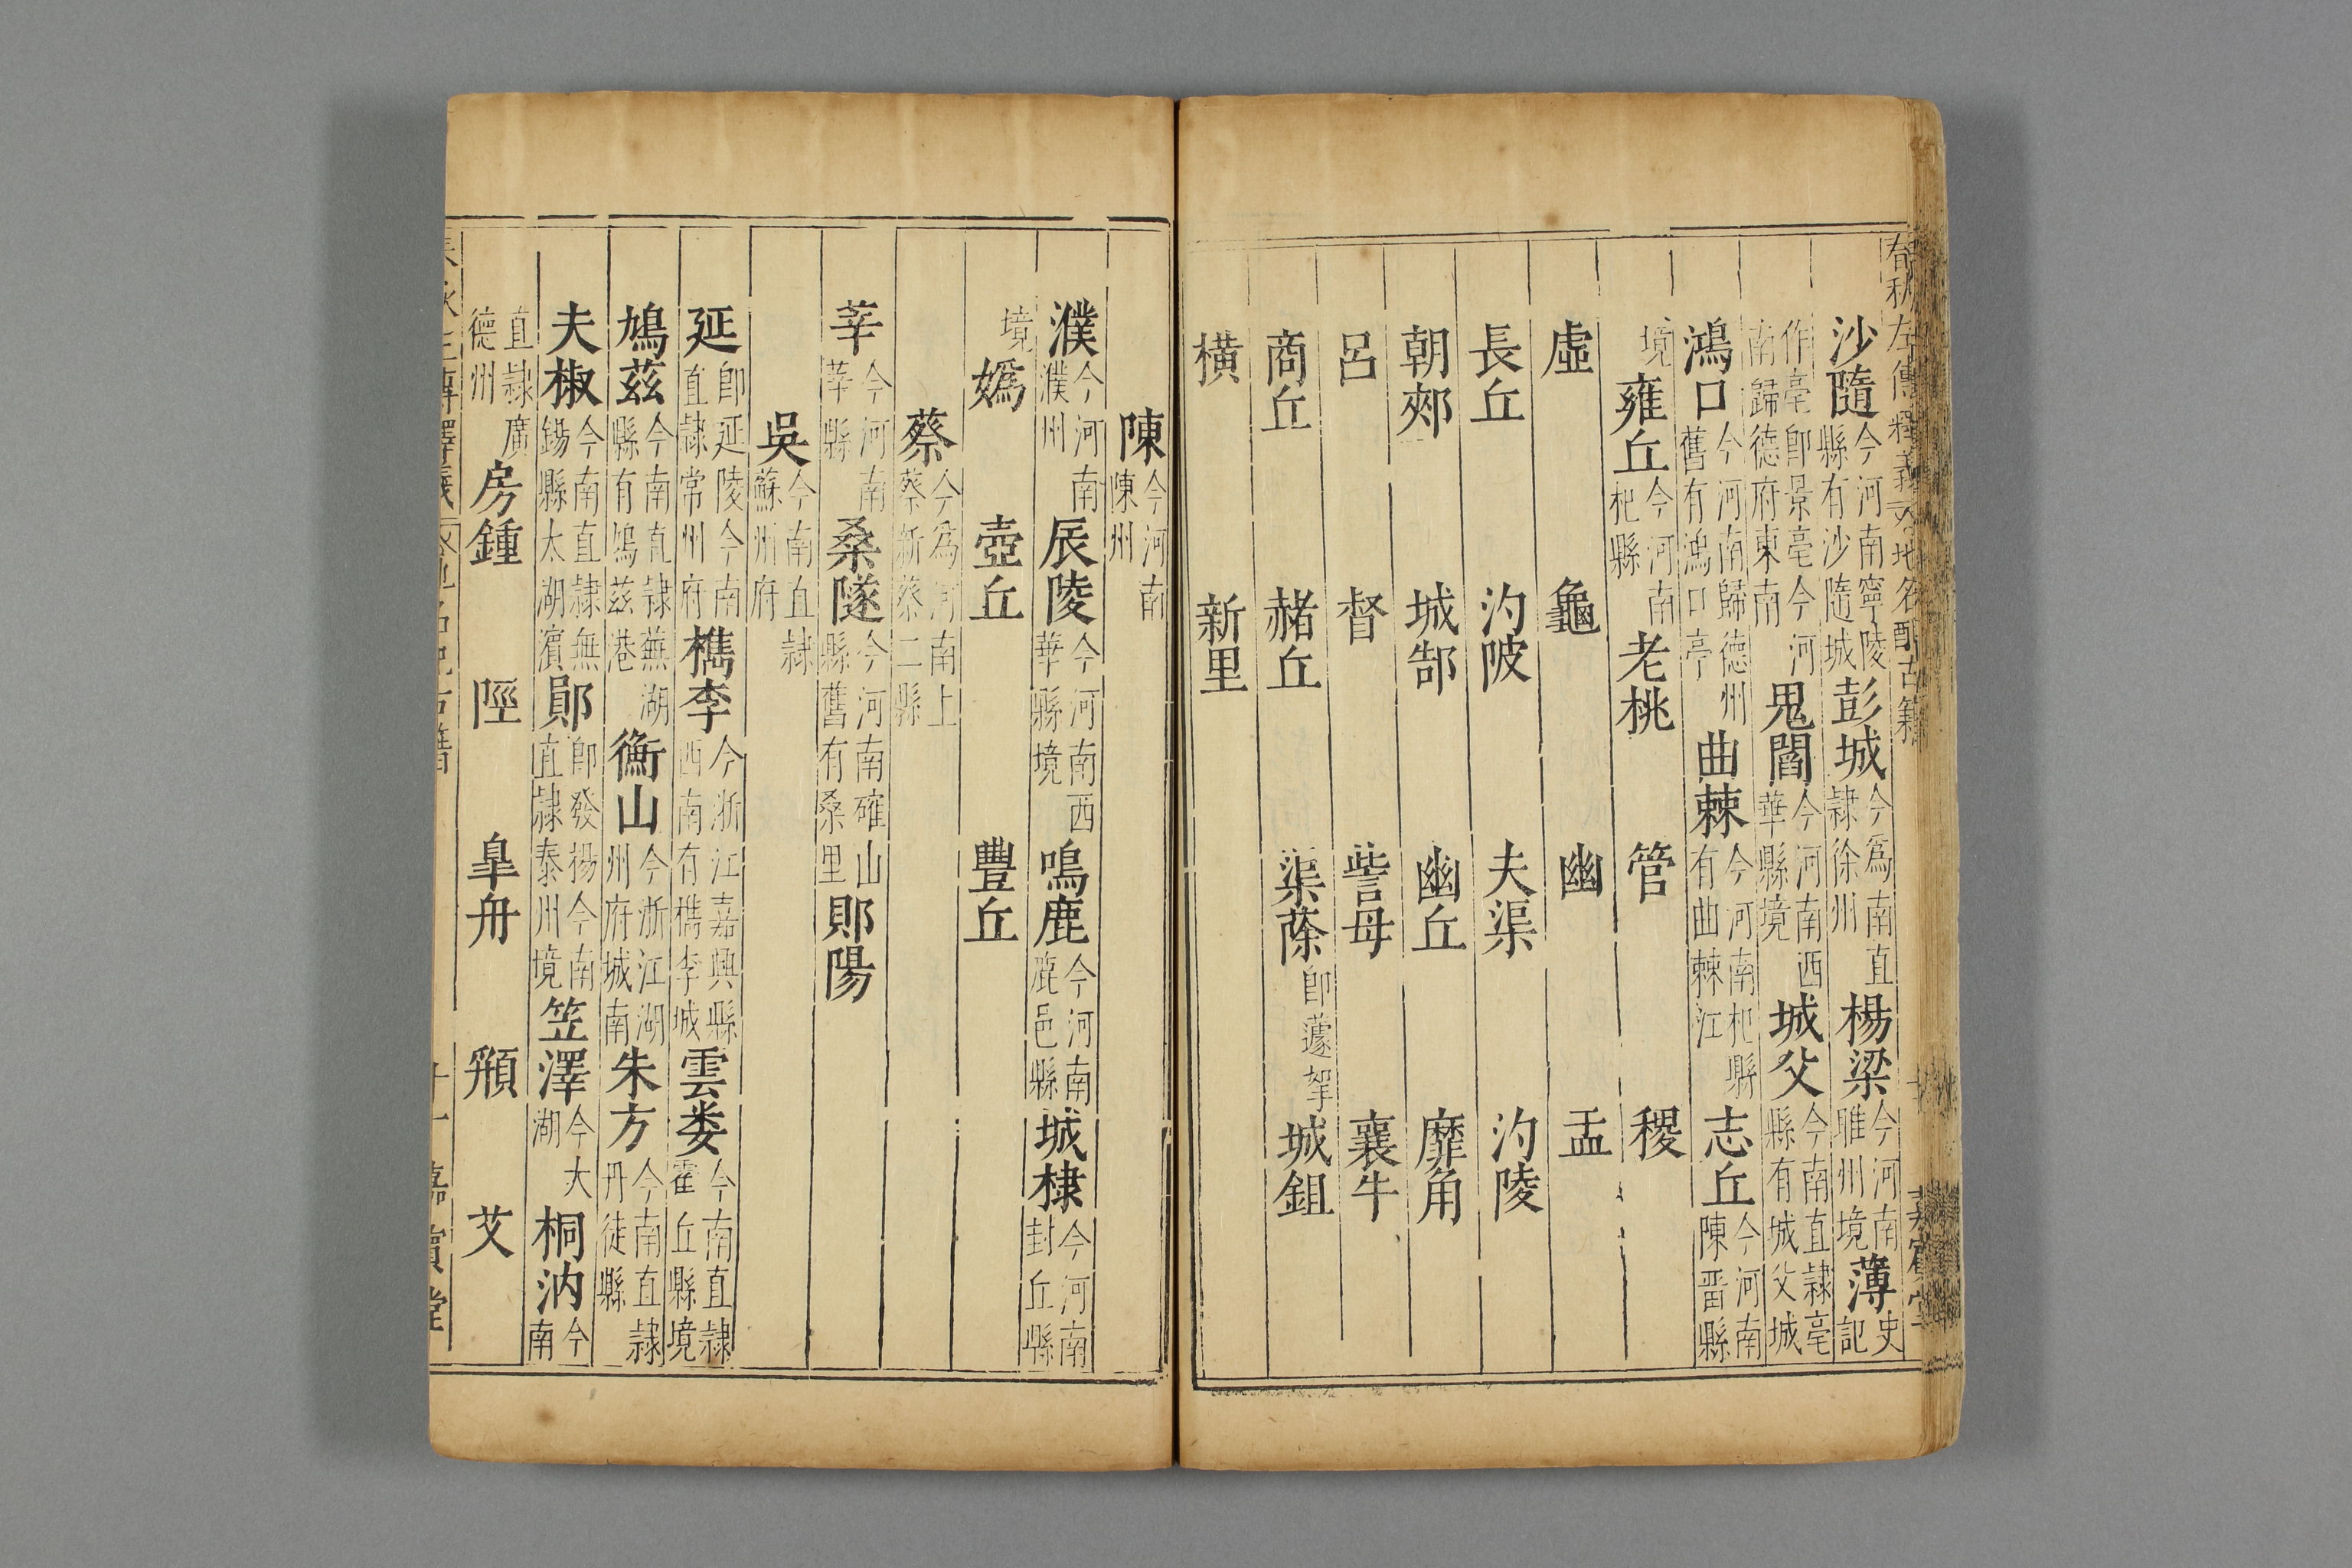 春秋左傳釋義 地名配古籍
沙隨今河南寧陵縣有沙隨城彭城今為南直隷徐州楊梁今河南睢州境薄史記
作亳即景亳今河南歸德府東南鬼閻今河南西華縣境城父今南直隷亳縣有城父城
鴻口今河南歸德州舊有鴻口亭曲棘今河南杞縣有曲棘江志丘今河南陳畱縣
境雍丘今河南杞縣老桃 管 稷
虛 龜 幽 盂
長丘 汋陂 夫渠 汋陵
朝郟 城郜 幽丘 靡角
呂 督 訾母 襄牛
商丘 赭丘 渠蒢即蘧挐城鉏
橫 新里
陳今河南陳州
濮今河南濮州辰陵今河南西華縣境鳴鹿今河南鹿邑縣城棣今河南封丘縣
境媯 壺丘 豐丘
蔡今為河南上蔡新蔡二縣
莘今河南莘縣桑隧今河南確山縣舊有桑里郹陽
吳今南直隷蘇州府
延即延陵今南直隷常州府檇李今浙江嘉興縣西南有檇李城雲婁今南直隷霍丘縣境
鳩茲今南直隷蕪湖縣有鳩茲港衡山今浙江湖州府城南朱方今南直隷丹徒縣
夫椒今南直隷無錫縣太湖濱鄖即發揚今南直隷泰州境笠澤今大湖桐汭今南
直隷廣德州房鍾 陘 皐舟 頯 艾